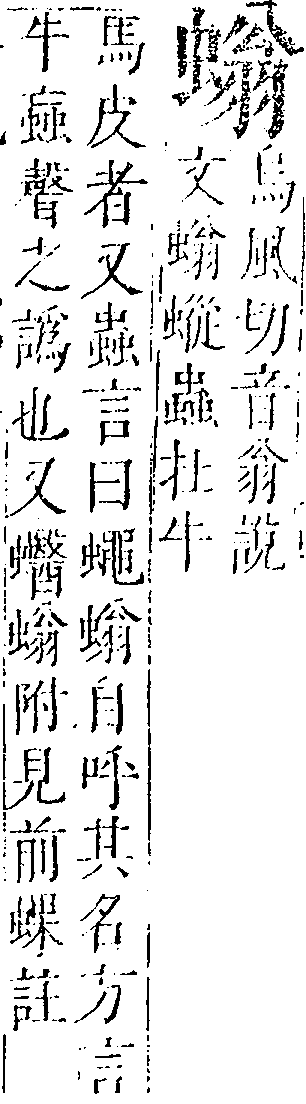 螉
烏風切音翁說
文螉䗥蟲在牛
馬皮者又蟲言曰蠅螉自呼其名方言
牛蝱聲之譌也又蠮螉附見前蜾註